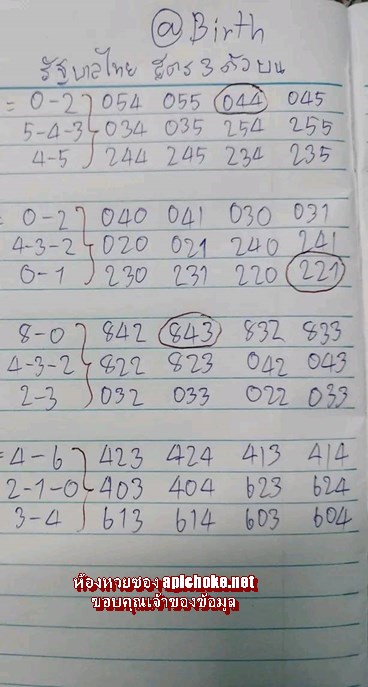 @Birth
รัฐบาลไทย สูตร 3 ตัวบน
= 0-2 } 054 055 044 045
5-4-3 034 035 254 255
4-5 244 245 234 235
= 0-2 } 040 041 030 031
4-3-2 020 021 240 241
0-1 230 231 220 221
8-0 } 842 843 832 833
4-3-2 822 823 042 043
2-3 032 033 022 033
= 4-6 } 423 424 413 414
2-1-0 403 404 623 624
3-4 613 614 603 604
ห้องหวยซอง apichoke.net
ขอบคุณเจ้าของข้อมูล